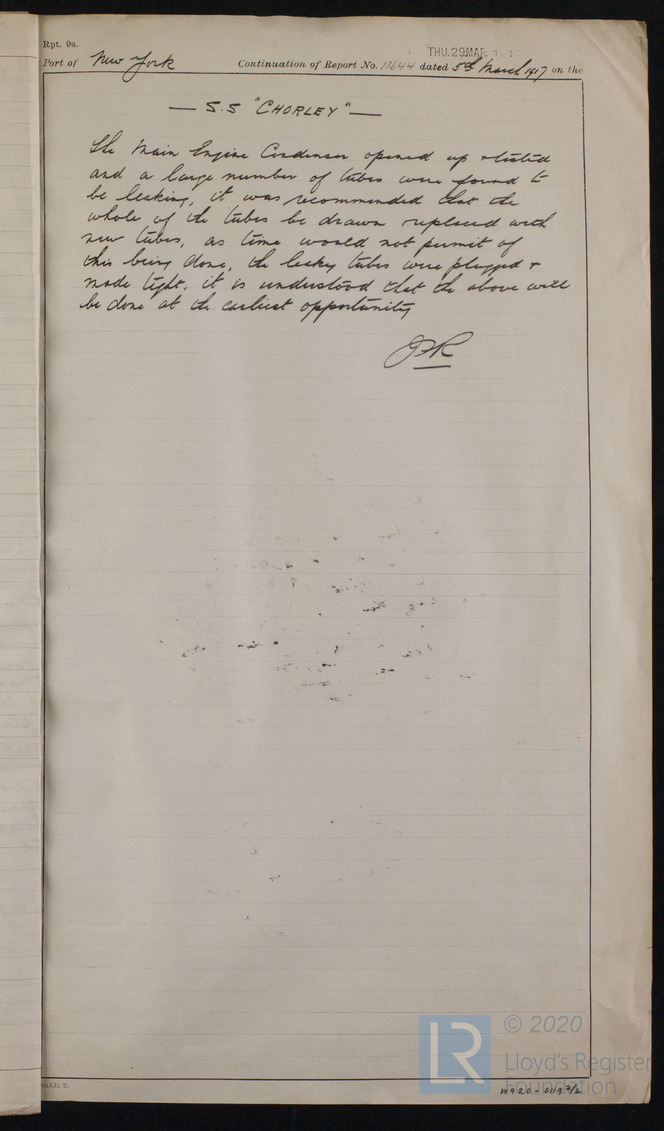 Rpt. 9a.
THU. 29 MAR
Port of New York Continuation of Report No. 15644 dated 5th March 1917 on the
— S.S "CHORLEY" —
The Main Engine Condenser opened up & tested
and a large number of tubes were found to
be leaking, it was recommended that the
whole of the tubes be drawn replaced with
new tubes, as time would not permit of
this being done, the leaky tubes were plugged &
made tight. it is understood that the above will
be done at the earliest opportunity
JFR
LR
© 2020
Lloyd's Register
Foundation
W920-0119 2/2